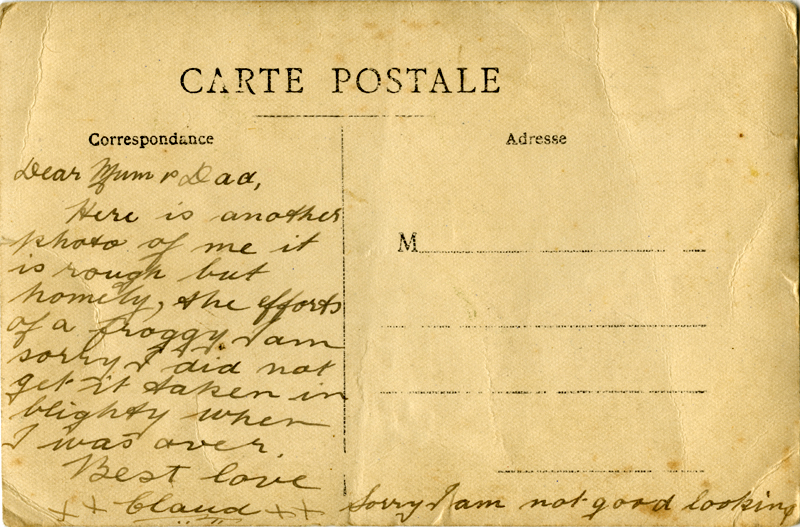 CARTE POSTALE
Correspondance
Adresse
Dear Mum & Dad,
Here is another
photo of me it
is rough but
homely, the efforts
of a froggy. I am
sorry I did not
get it taken in
blighty when
I was over.
Best love
x x Claud x x
Sorry I am not good looking
M